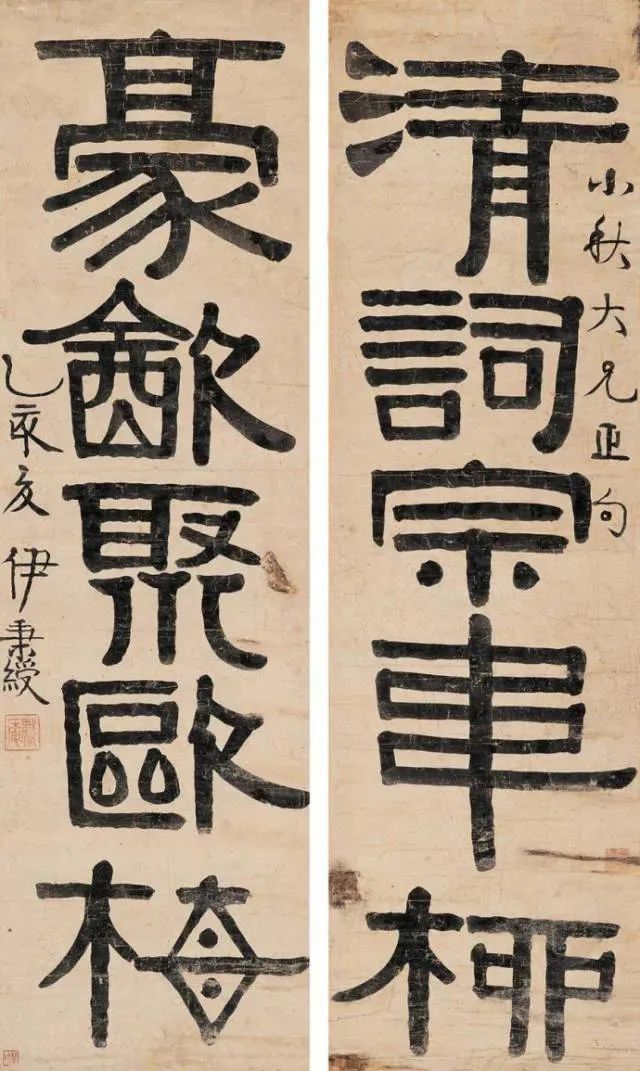 小秋大兄正句
清詞宗韋柳
豪㱃聚歐梅
乙亥夏 伊秉綬